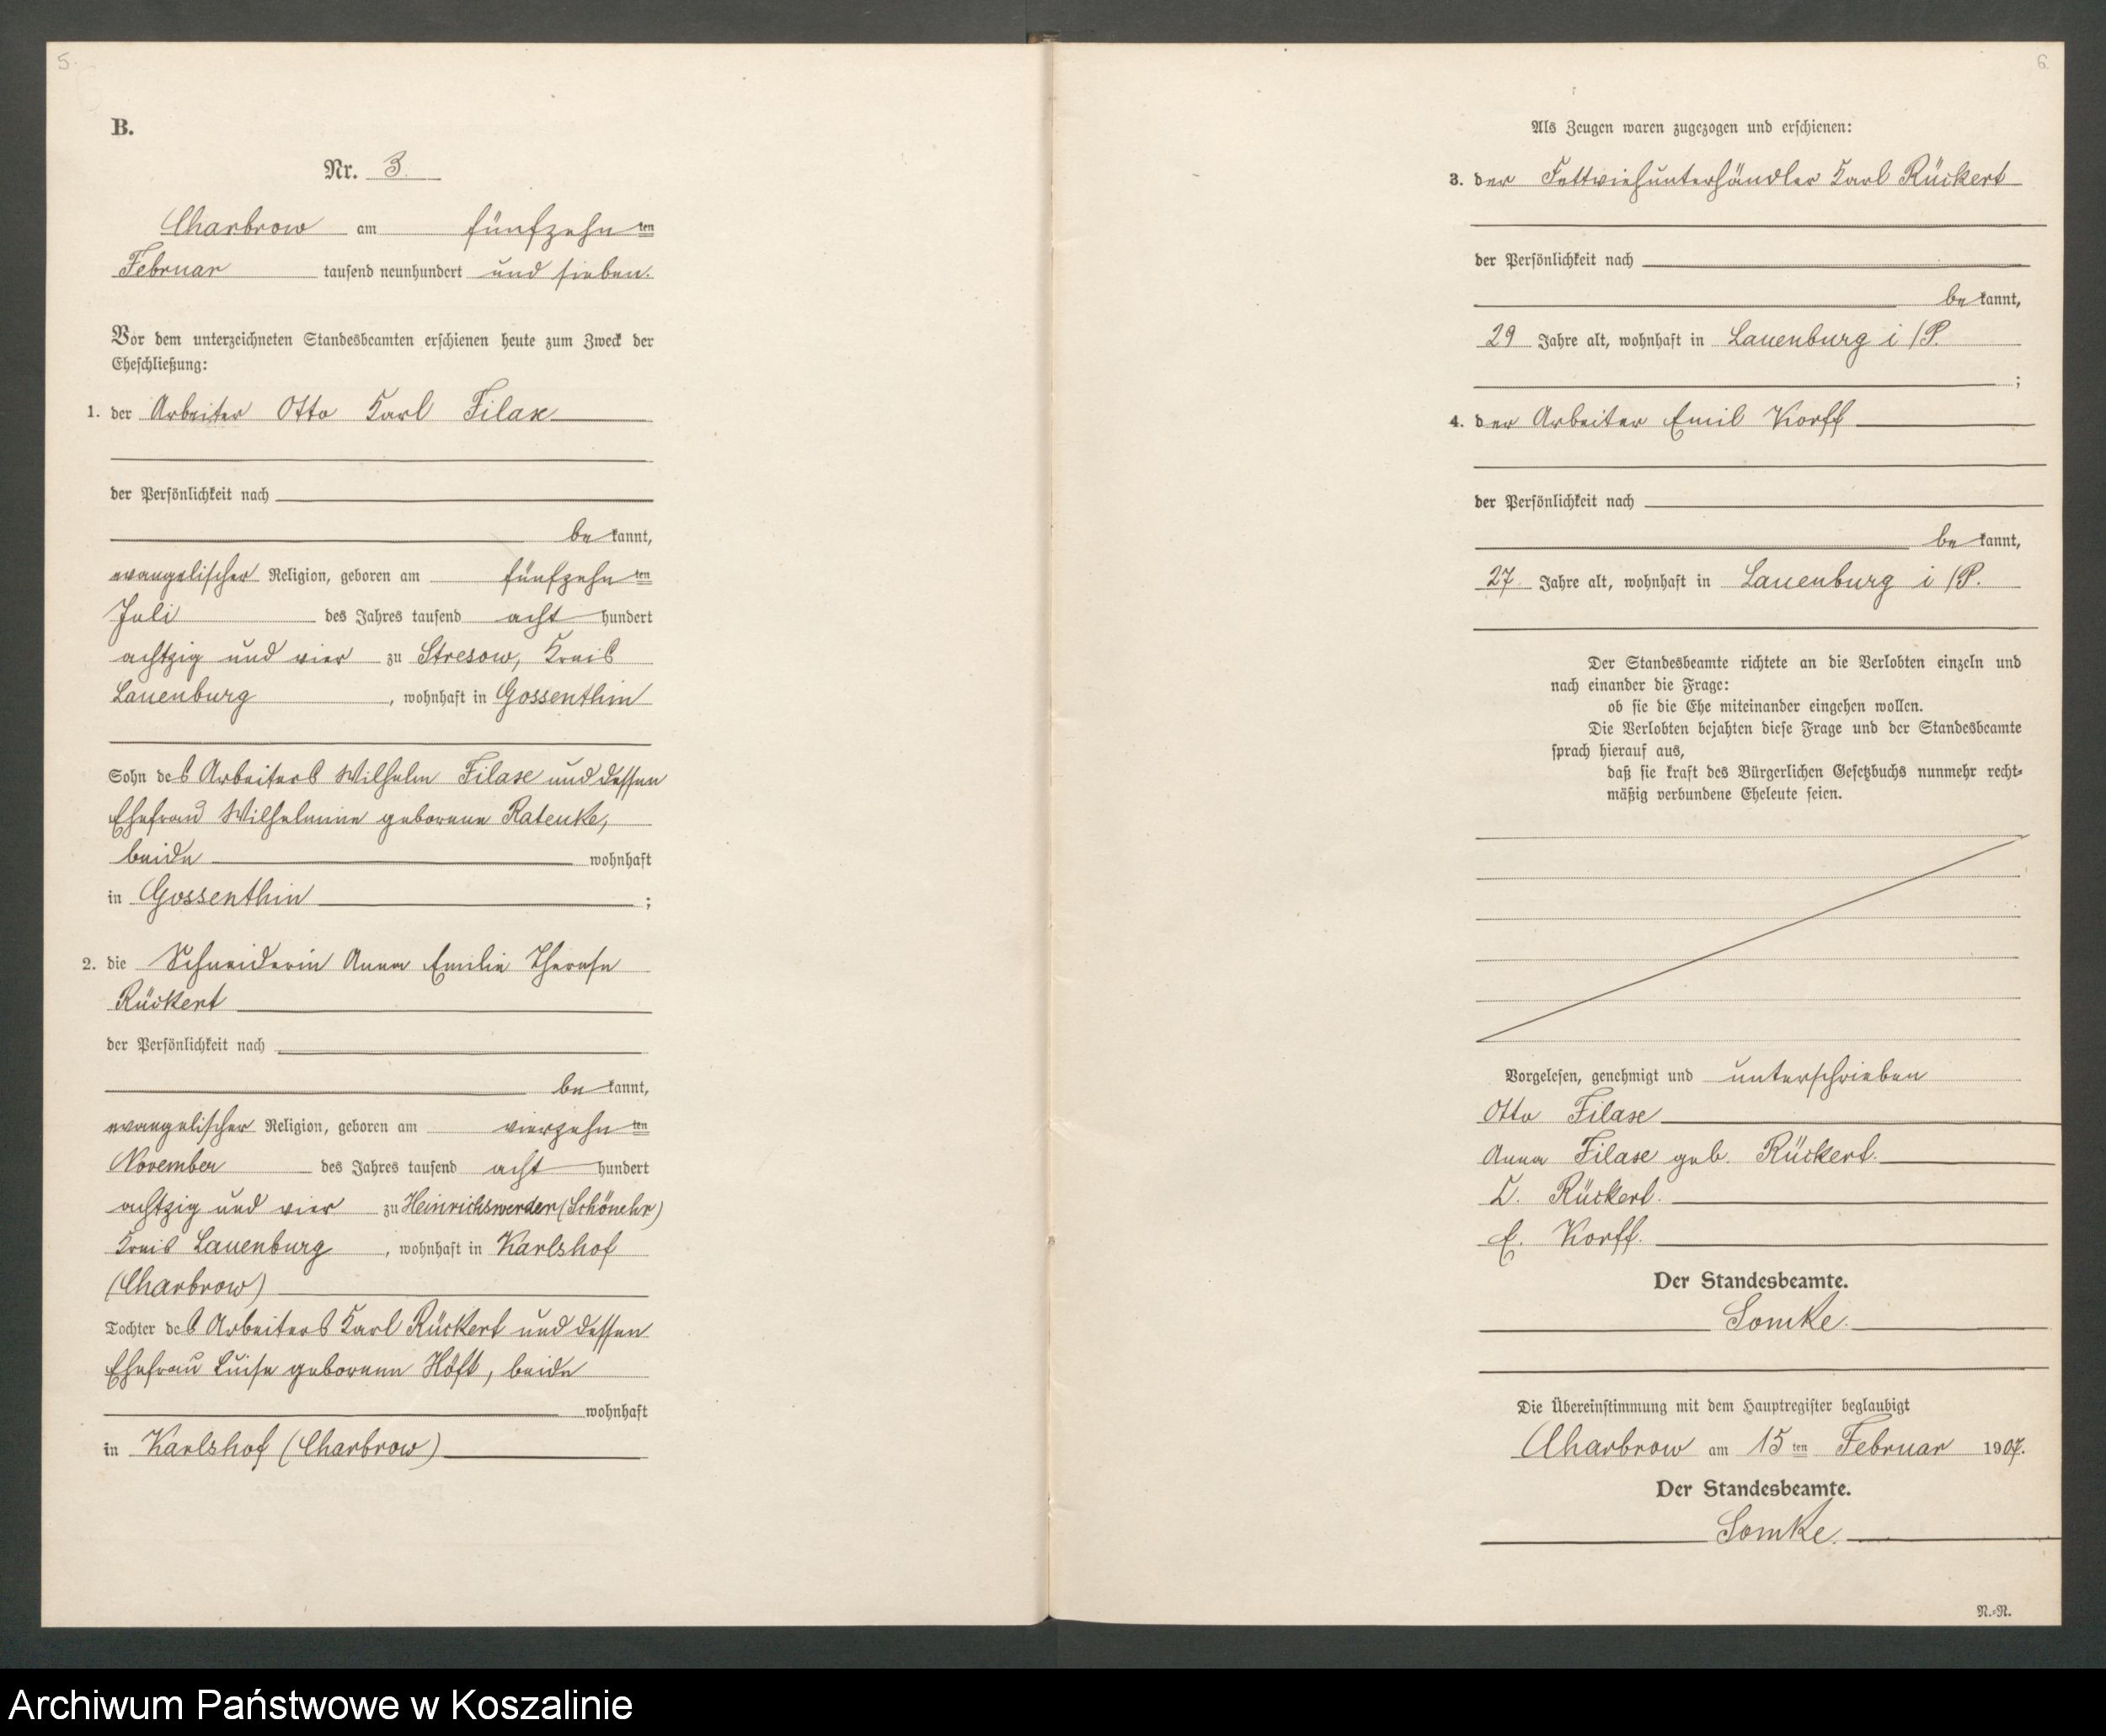 5.
B.
Nr. 3.
Charbrow am fünfzehn ten
Februar tausend neunhundert und sieben.
Vor dem unterzeichneten Standesbeamten erschienen heute zum Zweck der
Eheschließung:
1. der Arbeiter Otto Karl Filase
der Persönlichkeit nach
be kannt,
evangelischer Religion, geboren am fünfzehn ten
Juli des Jahres tausend acht hundert
achtzig und vier zu Stresow, Kreis
Lauenburg, wohnhaft in Gossenthin
Sohn des Arbeiters Wilhelm Filase und dessen
Ehefrau Wilhelmine geborene Ratenke,
beide wohnhaft
in Gossenthin ;
2. die Schneiderin Anna Emilie Therese
Rückert
der Persönlichkeit nach
be kannt,
evangelischer Religion, geboren am vierzehn ten
November des Jahres tausend acht hundert
achtzig und vier zu Heinrichswerder (Schönehr)
Kreis Lauenburg, wohnhaft in Karlshof
(Charbrow)
Tochter des Arbeiters Karl Rückert und dessen
Ehefrau Luise geborenen Höft, beide
wohnhaft
in Karlshof (Charbrow)
6.
Als Zeugen waren zugezogen und erschienen:
3. der Fettviehunterhändler Karl Rückert
der Persönlichkeit nach
be kannt,
29 Jahre alt, wohnhaft in Lauenburg i/P.
;
4. der Arbeiter Emil Korff
der Persönlichkeit nach
be kannt,
27 Jahre alt, wohnhaft in Lauenburg i/P.
Der Standesbeamte richtete an die Verlobten einzeln und
nach einander die Frage:
ob sie die Ehe miteinander eingehen wollen.
Die Verlobten bejahten diese Frage und der Standesbeamte
sprach hierauf aus,
daß sie kraft des Bürgerlichen Gesetzbuchs nunmehr recht-
mäßig verbundene Eheleute seien.
Vorgelesen, genehmigt und unterschrieben
Otto Filase
Anna Filase geb. Rückert.
K. Rückert.
E. Korff.
Der Standesbeamte.
Somke.
Die Übereinstimmung mit dem Hauptregister beglaubigt
Charbrow am 15 ten Februar 1907.
Der Standesbeamte.
Somke.
N.-N.
Archiwum Państwowe w Koszalinie